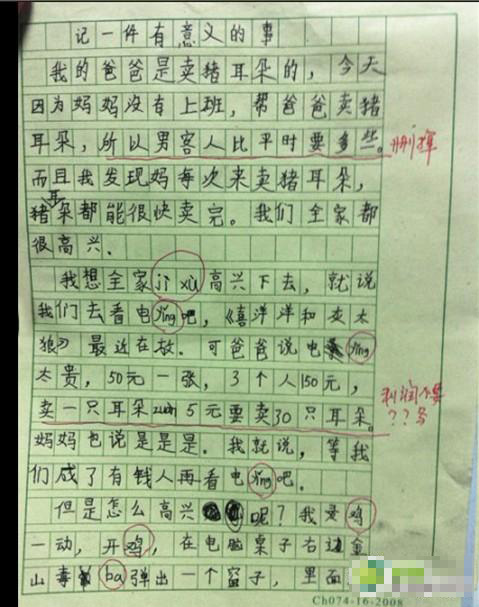 记一件有意义的事
我的爸爸是卖猪耳朵的，今天
因为妈妈没有上班，帮爸爸卖猪
耳朵，所以男客人比平时要多些。 删掉
而且我发现妈每次来卖猪耳朵，
猪耳朵都能很快卖完。我们全家都
很高兴。
我想全家jì xù高兴下去，就说
我们去看电yǐng吧，《喜洋洋和灰太
狼》最近在放。可爸爸说电yǐng
太贵，50元一张，3个人150元，
卖一只耳朵zuàn5元要卖30只耳朵。 利润不要
??多
妈妈也说是是是。我就说，等我
们成了有钱人再看电yǐng吧。
但是怎么高兴呢？我灵鸡
一动，开鸡，在电脑桌子右边金
山毒ba弹出一个窗子，里面
Ch074-16-2008